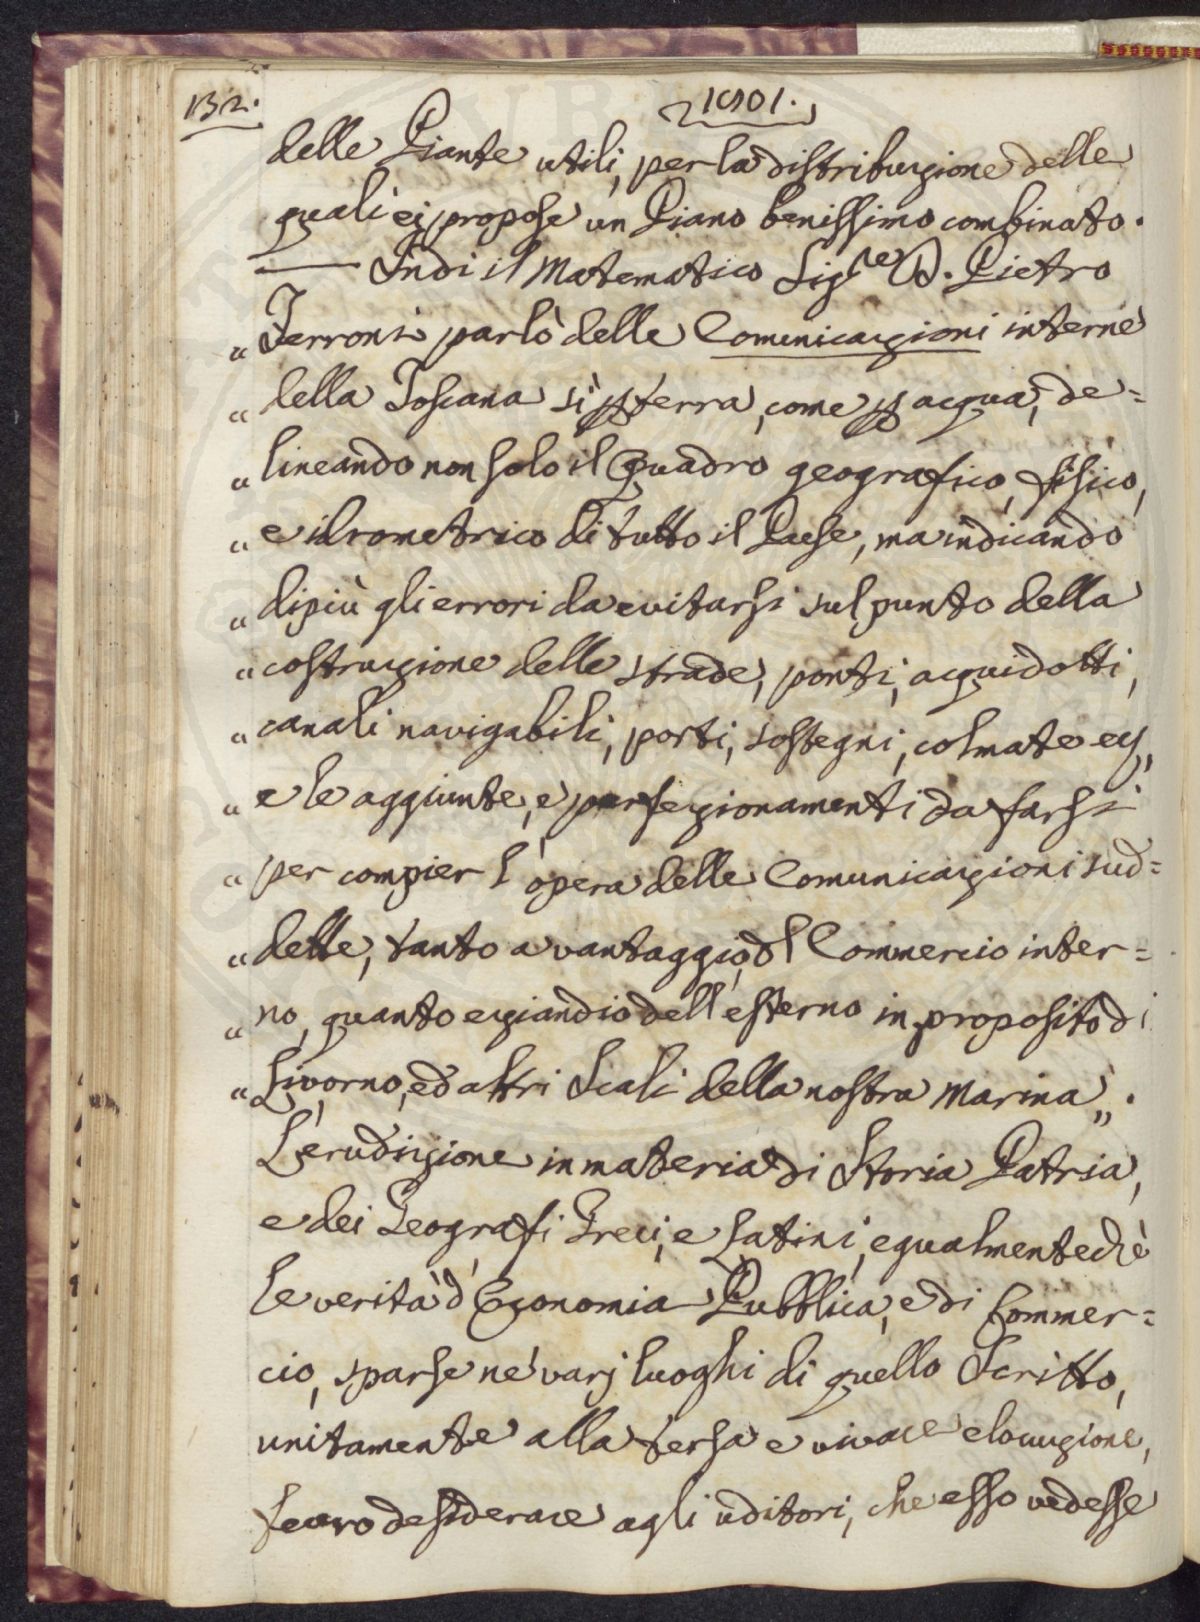 132.
1801.
delle Piante utili, per la distribuzione delle
quali ei propose un Piano benissimo combinato.
— Indi il Matematico Sig.re D. Pietro
„ Ferroni parlò delle Comunicazioni interne
„ della Toscana sì p terra, come p acqua, de=
„ lineando non solo il Quadro geografico, fisico,
„ e idrometrico di tutto il Paese, ma indicando
„ dipiù gli errori da evitarsi sul punto della
„ costruzione delle strade, ponti, acquidotti,
„ canali navigabili, porti, sostegni, colmate ec,
„ e le aggiunte, e perfezionamenti da farsi
„ per compier l'opera delle Comunicazioni sud=
„ dette, tanto a vantaggio dl Commercio inter=
„ no, quanto eziandio dell'esterno in proposito di
„ Livorno, ed altri Scali della nostra Marina „.
L'erudizione in materia di Storia Patria,
e dei Geografi Greci, e Latini, egualmente chè
le verità d'Economia Pubblica, e di Commer=
cio, sparse ne' varj luoghi di quello Scritto,
unitamente alla tersa e vivace elocuzione,
fecero desiderare agli uditori, che esso vedesse